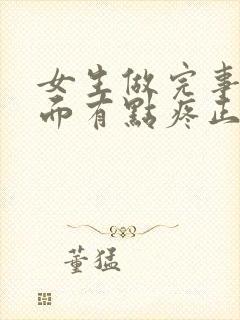 女生做完事
而有點疼止
董猛